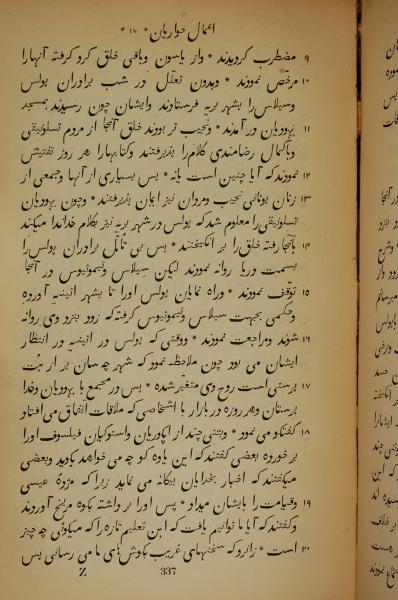 اعمال حواریان * ۱۷ *
۹ مضطرب کردیدند * واز یاسون وباقی خلق کرو کرفته آنهارا
۱۰ مرخّص نمودند * وبدون تعلل در شب برادران پولس
وسیلاس را بشهر بریه فرستادند وایشان چون رسیدند بمسجد
۱۱ یهودیان در آمدند * ونجیب تر بودند خلق آنجا از مردم تسلونیقی
وباکمال رضامندی کلام را پذیرفتند وکتابهارا هر روز تفتیش
۱۲ نمودند که آیا چنین است یا نه * پس بسیاری از آنها وجمعی از
۱۳ زنان یونانی نجیب ومردان نیز ایمان پذیرفتند * وچون یهودیان
تسلونیقی را معلوم شد که پولس در شهر بریه نیز بکلام خدا ندا میکند
۱۴ بآنجا رفته خلق را بر انکیختند * پس بی تأمّل برادران پولس را
بسمت دریا روانه نمودند لیکن سیلاس وتیموثیوس در آنجا
۱۵ توقّف نمودند * وراه نمایان پولس اورا تا بشهر اثینیه آورده
وحکمی بجهت سیلاس وتیموثیوس کرفته که زود بنزد وی روانه
۱۶ شوند ومراجعت نمودند * ووقتی که پولس در اثینیه در انتظار
ایشان می بود چون ملاحظه نمود که شهر چه سان پر از بت
۱۷ پرستی است روح وی متغیّر شده * پس در مجمع با یهودیان وخدا
پرستان وهر روزه در بازار با اشخاصی که ملاقات اتفاق می افتاد
۱۸ کفتکو می نمود * وتنی چند از اپکوریان واستوکیان فیلسوف اورا
بر خورده بعضی کفتند که این یاوه کو چه می خواهد بکوید وبعضی
میکفتند که اخبار بخدایان بیکانه می نماید زیرا که مژدهٔ عیسی
۱۹ وقیامت را بایشان میداد * پس اورا بر داشته بکوه مریخ آوردند
وکفتند که آیا ما توانیم یافت که این تعلیم تازه را که میکوئی چه چیز
۲۰ است * زانرو که سخنهای غریب بکوش های ما می رسانی پس
Z 337